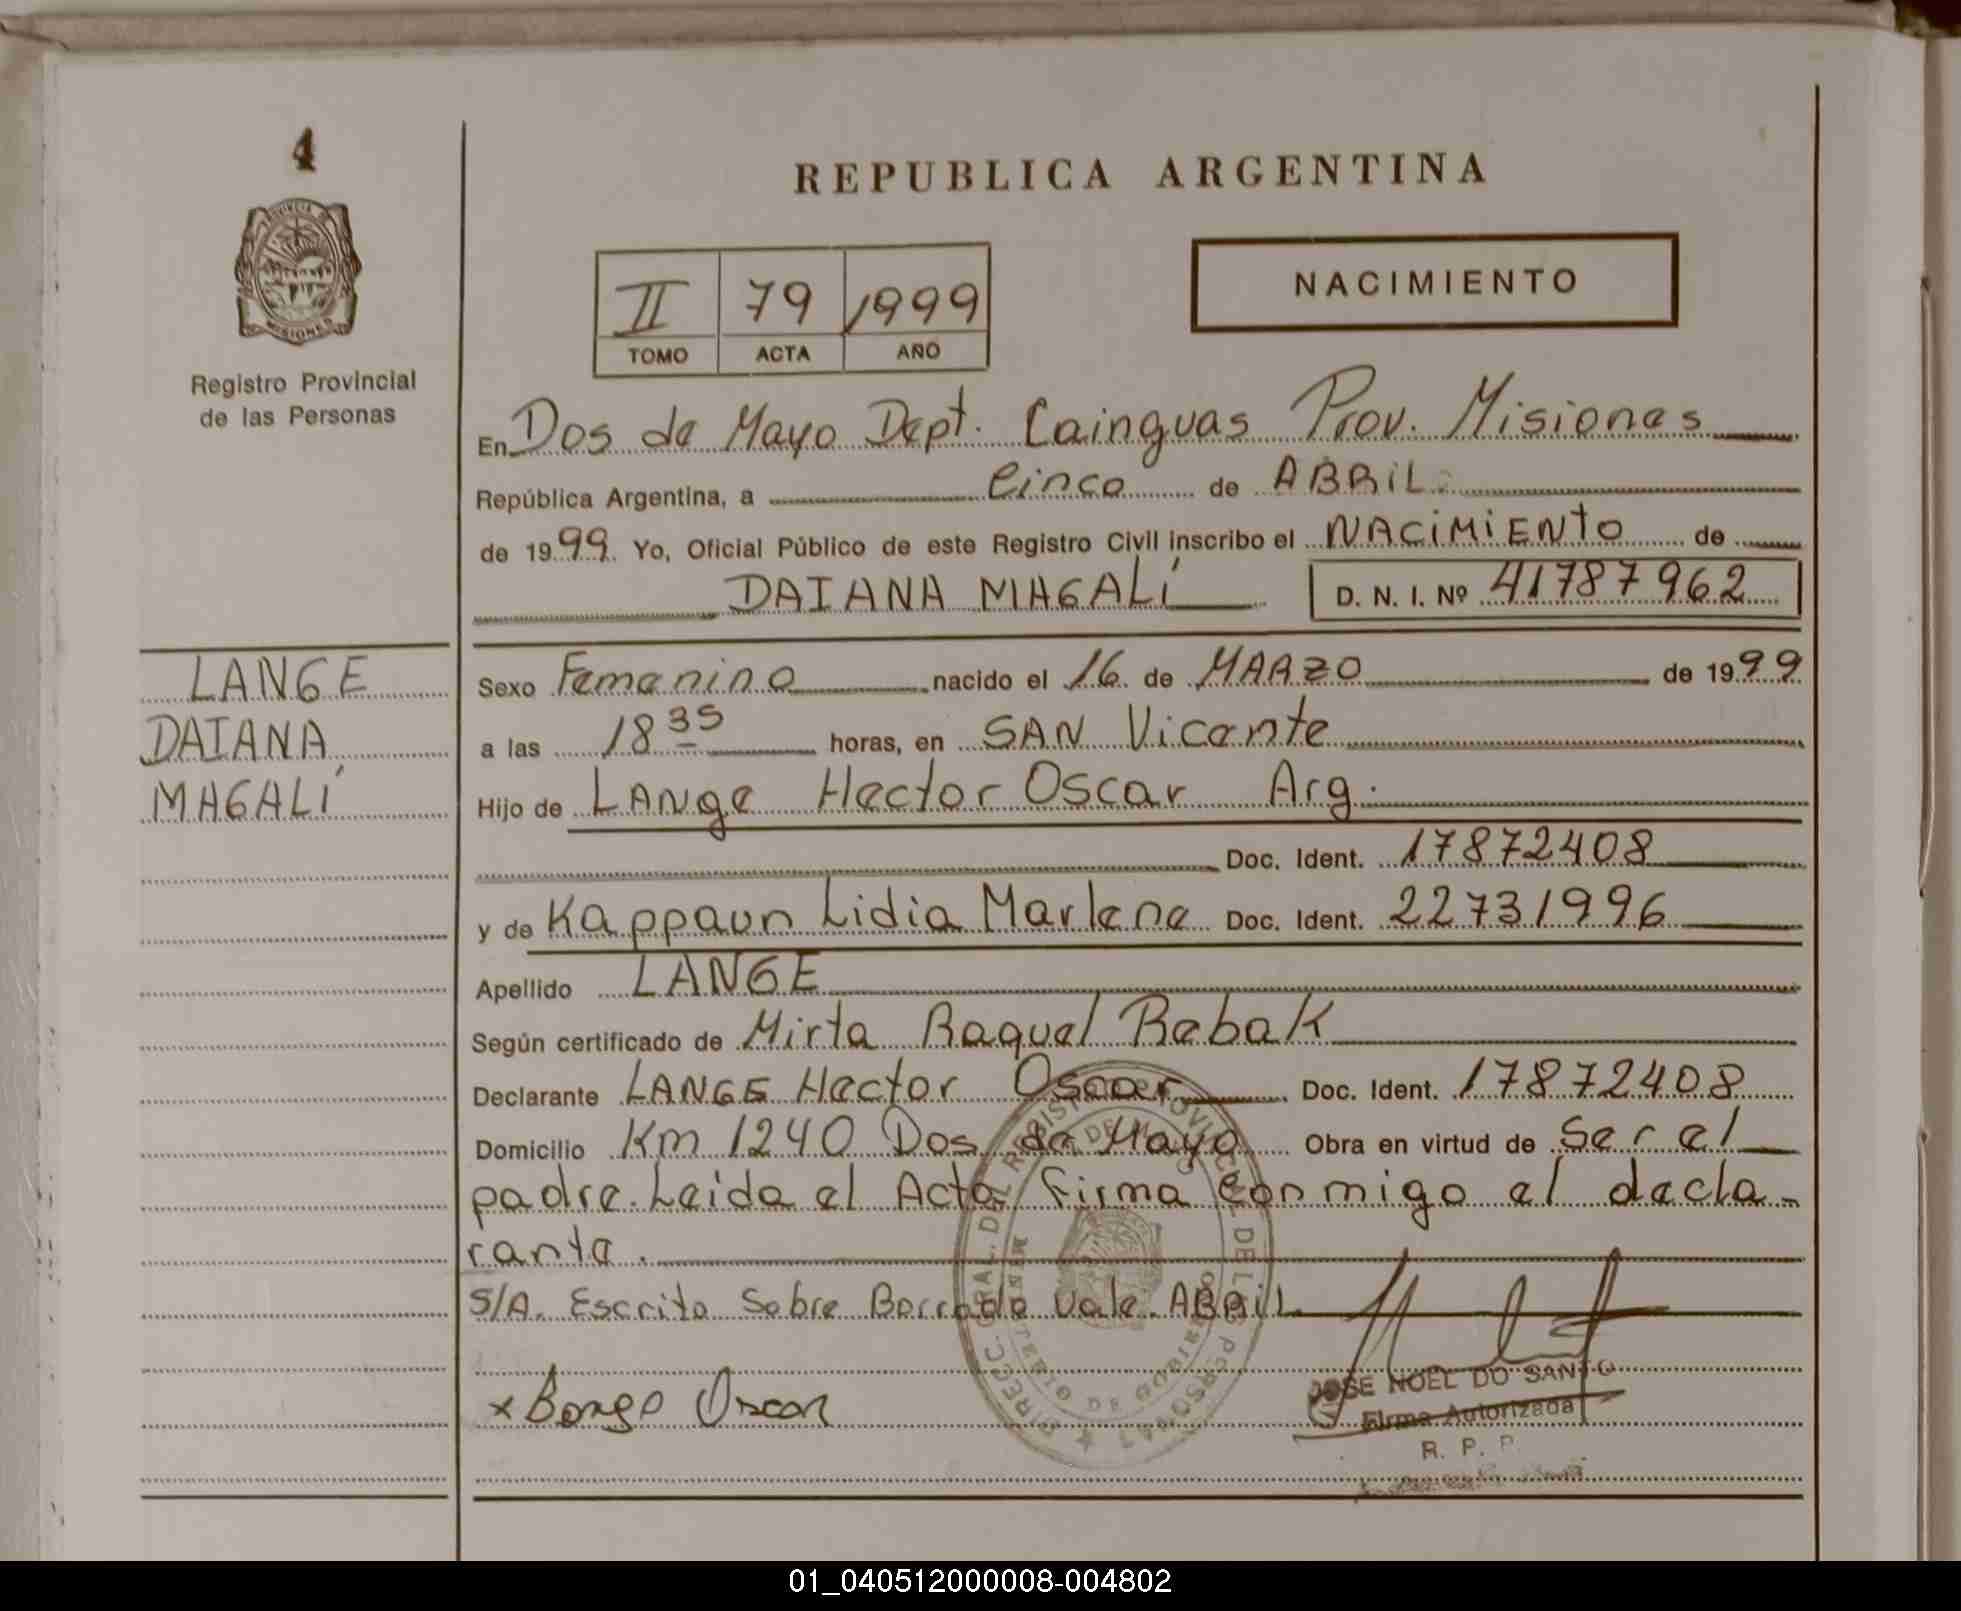 4
PROVINCIA DE
MISIONES
Registro Provincial
de las Personas
REPUBLICA ARGENTINA
II 79 1999
TOMO ACTA AÑO
NACIMIENTO
En Dos de Mayo Dept. Cainguas Prov. Misiones
República Argentina, a Cinco de ABRIL
de 1999 Yo, Oficial Público de este Registro Civil inscribo el NACIMIENTO de
DAIANA MAGALÍ D. N. I. Nº 41787962
LANGE
DAIANA
MAGALÍ
Sexo Femenino nacido el 16 de MARZO de 1999
a las 18 35 horas, en SAN Vicente
Hijo de LANge Hector Oscar Arg.
Doc. Ident. 17872408
y de Kappaun Lidia Marlene Doc. Ident. 22731996
Apellido LANGE
Según certificado de Mirta Raquel Rebak
Declarante LANGE Hector Oscar Doc. Ident. 17872408
Domicilio Km 1240 Dos de Mayo Obra en virtud de Ser el
padre. Leida el Acta firma conmigo el decla-
rante.
S/A. Escrito Sobre Borrado Vale. ABRIL
x Oscar
JOSE NOEL DO SANTO
Firma Autorizada
R. P. P
01_040512000008-004802